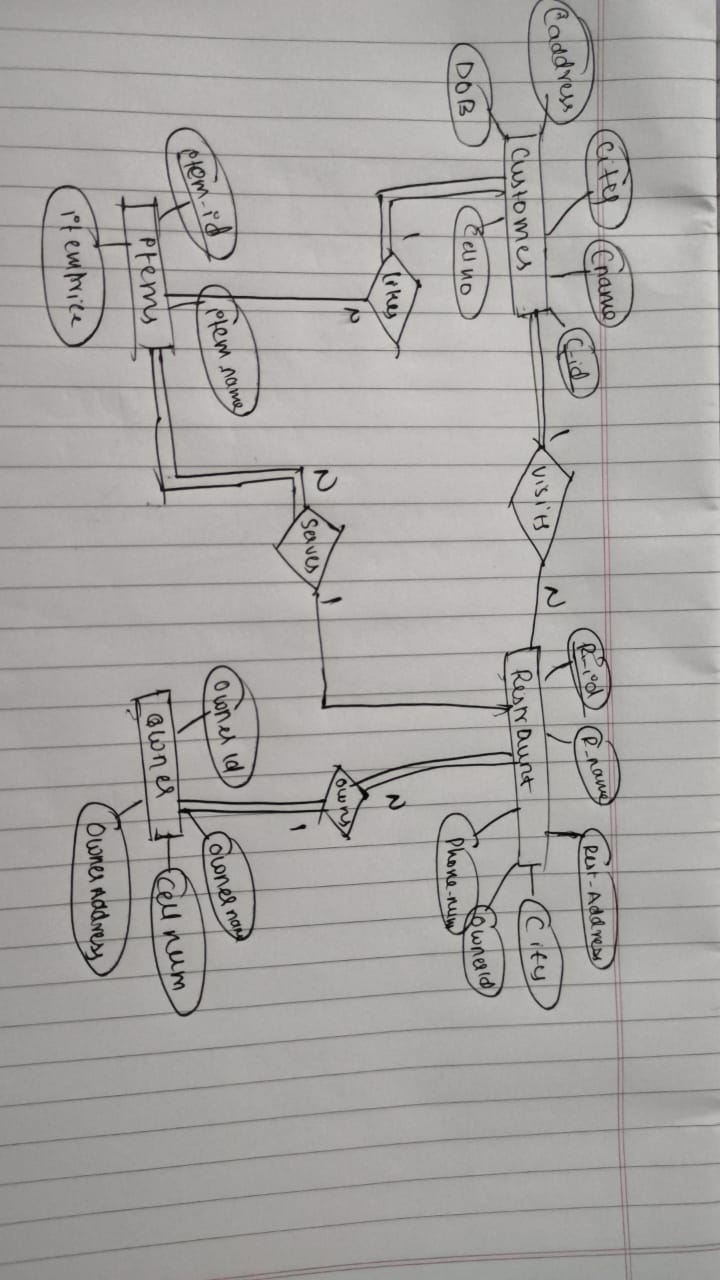 City
Cname
C-id
Caddress
Customes
DOB
Cell no
1
visits
N
R-id
R-name
Rest-Address
Restraunt
City
OwnerId
Phone-num
1
Likes
N
N
Serves
1
N
Owns
1
item-id
item name
Items
itemPrice
Owner id
Owner name
Owner
Cell num
Owner Address